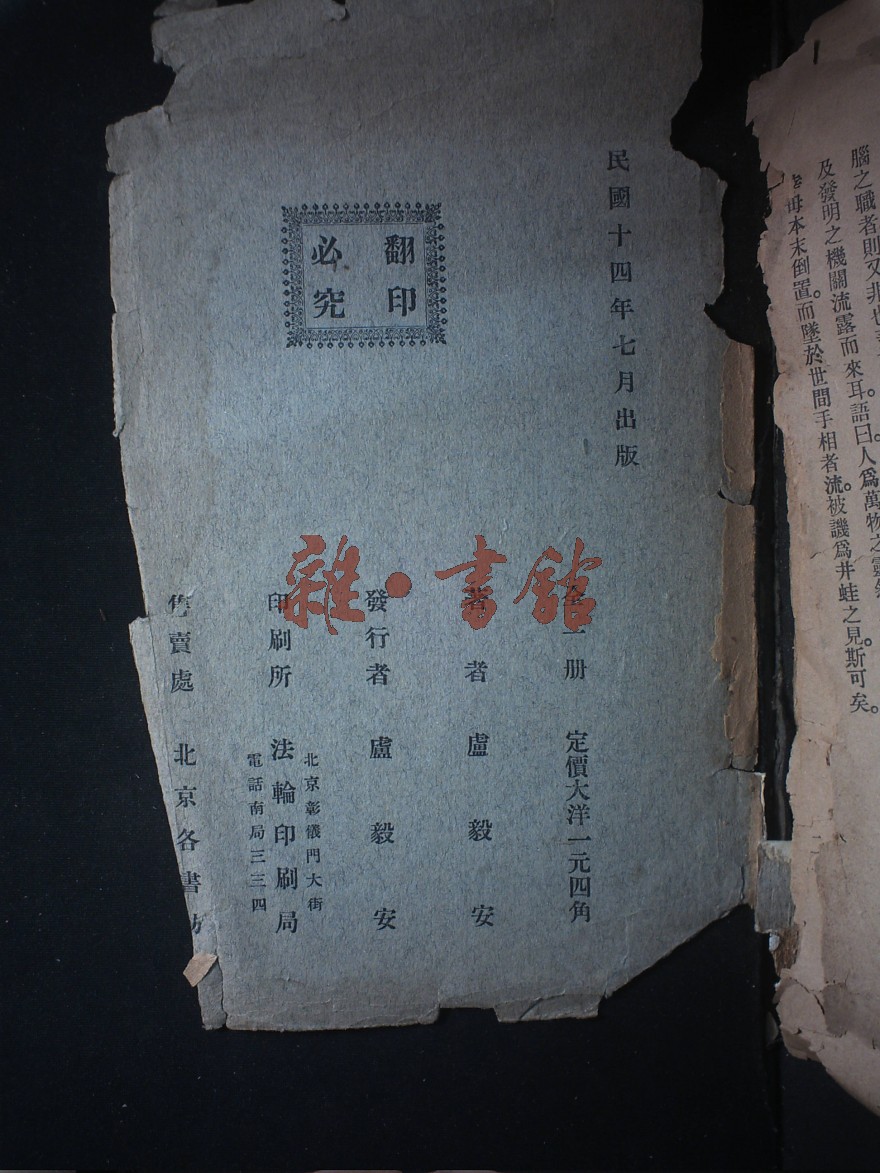 腦之職者則又非也
及發明之機關流露而來耳。語曰人爲萬物之靈
毋本末倒置。而墜於世間手相者流。被譏爲井蛙之見斯可矣。
民國十四年七月出版
翻印
必究
全一册 定價大洋一元四角
著者 盧毅安
發行者 盧毅安
北京彰儀門大街
印刷所 法輪印刷局
電話南局三三四
售賣處 北京各書
雜·書館